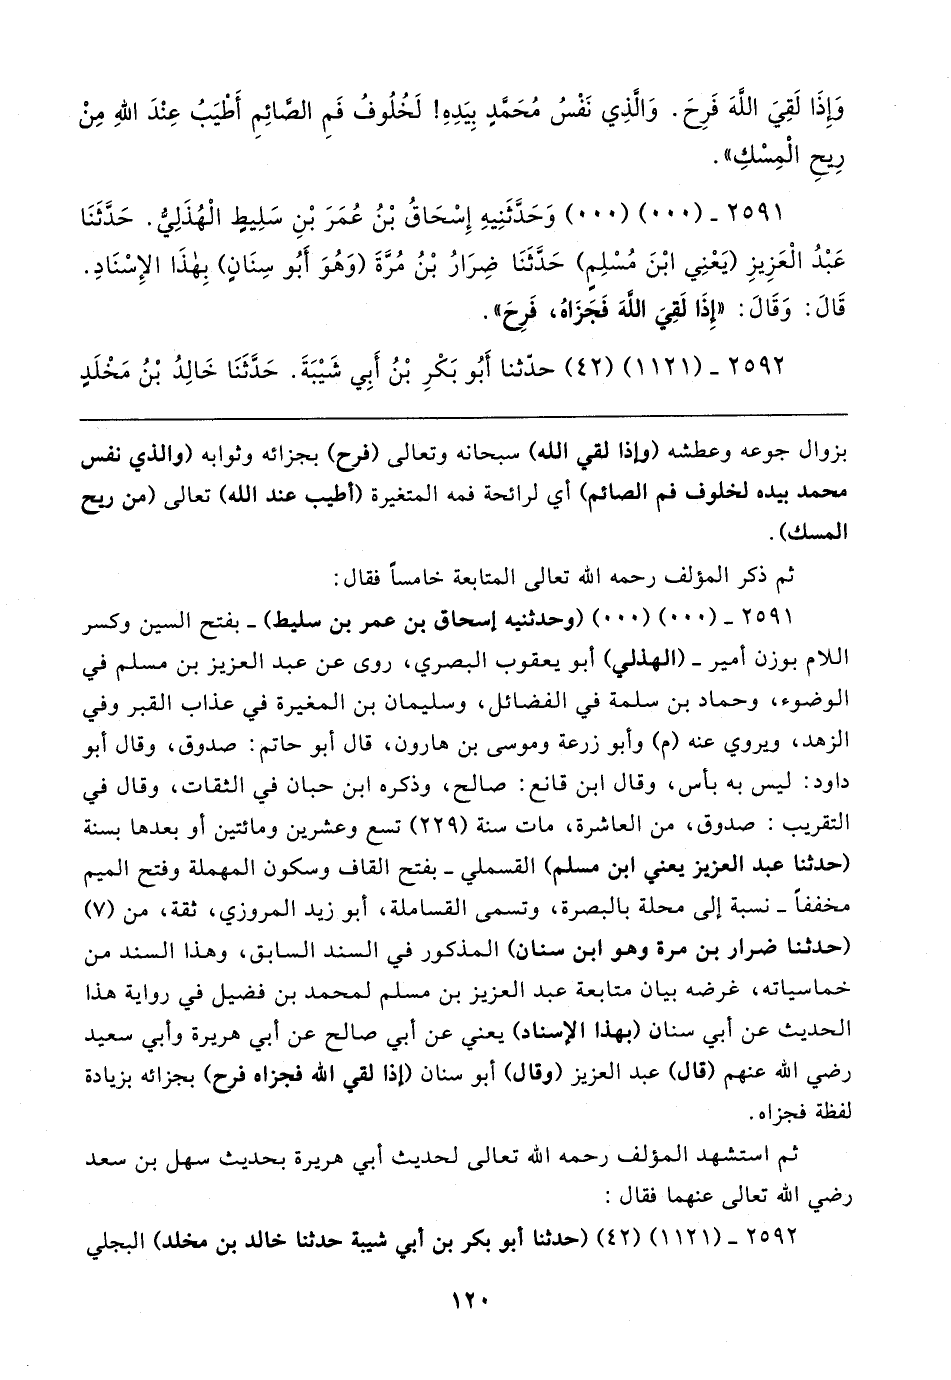 وَإِذَا لَقِيَ اللَّهَ فَرِحَ. وَالَّذِي نَفْسُ مُحَمَّدٍ بِيَدِهِ! لَخُلُوفُ فَمِ الصَّائِمِ أَطْيَبُ عِنْدَ اللهِ مِنْ
رِيحِ الْمِسْكِ».
٢٥٩١ ـ (٠٠٠) (٠٠٠) وَحَدَّثَنِيهِ إِسْحَاقُ بْنُ عُمَرَ بْنِ سَلِيطٍ الْهُذَلِيُّ. حَدَّثَنَا
عَبْدُ الْعَزِيزِ (يَعْنِي ابْنَ مُسْلِمٍ) حَدَّثَنَا ضِرَارُ بْنُ مُرَّةَ (وَهُوَ أَبُو سِنَانٍ) بِهٰذَا الإِسْنَادِ.
قَالَ: وَقَالَ: «إِذَا لَقِيَ اللَّهَ فَجَزَاهُ، فَرِحَ».
٢٥٩٢ ـ (١١٢١) (٤٢) حدّثنا أَبُو بَكْرِ بْنُ أَبِي شَيْبَةَ. حَدَّثَنَا خَالِدُ بْنُ مَخْلَدٍ
بزوال جوعه وعطشه (وإذا لقي الله) سبحانه وتعالى (فرح) بجزائه وثوابه (والذي نفس
محمد بيده لخلوف فم الصائم) أي لرائحة فمه المتغيرة (أطيب عند الله) تعالى (من ريح
المسك).
ثم ذكر المؤلف رحمه الله تعالى المتابعة خامساً فقال:
٢٥٩١ ـ (٠٠٠) (٠٠٠) (وحدثنيه إسحاق بن عمر بن سليط) ـ بفتح السين وكسر
اللام بوزن أمير ـ (الهذلي) أبو يعقوب البصري، روى عن عبد العزيز بن مسلم في
الوضوء، وحماد بن سلمة في الفضائل، وسليمان بن المغيرة في عذاب القبر وفي
الزهد، ويروي عنه (م) وأبو زرعة وموسى بن هارون، قال أبو حاتم: صدوق، وقال أبو
داود: ليس به بأس، وقال ابن قانع: صالح، وذكره ابن حبان في الثقات، وقال في
التقريب: صدوق، من العاشرة، مات سنة (٢٢٩) تسع وعشرين ومائتين أو بعدها بسنة
(حدثنا عبد العزيز يعني ابن مسلم) القسملي ـ بفتح القاف وسكون المهملة وفتح الميم
مخففاً ـ نسبة إلى محلة بالبصرة، وتسمى القساملة، أبو زيد المروزي، ثقة، من (٧)
(حدثنا ضرار بن مرة وهو ابن سنان) المذكور في السند السابق، وهذا السند من
خماسياته، غرضه بيان متابعة عبد العزيز بن مسلم لمحمد بن فضيل في رواية هذا
الحديث عن أبي سنان (بهذا الإسناد) يعني عن أبي صالح عن أبي هريرة وأبي سعيد
رضي الله عنهم (قال) عبد العزيز (وقال) أبو سنان (إذا لقي الله فجزاه فرح) بجزائه بزيادة
لفظة فجزاه.
ثم استشهد المؤلف رحمه الله تعالى لحديث أبي هريرة بحديث سهل بن سعد
رضي الله تعالى عنهما فقال:
٢٥٩٢ ـ (١١٢١) (٤٢) (حدثنا أبو بكر بن أبي شيبة حدثنا خالد بن مخلد) البجلي
١٢٠